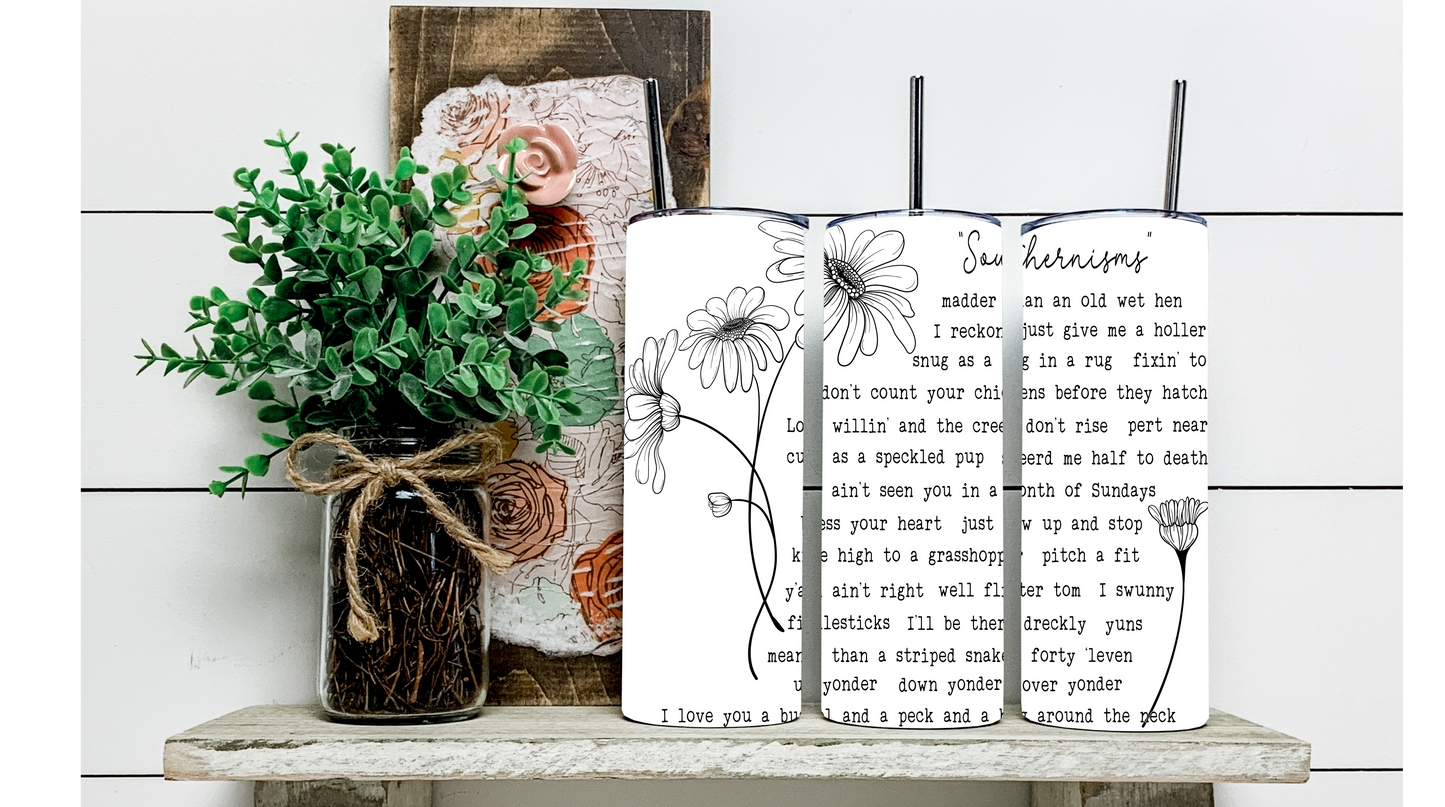 "Southernisms"
madder than an old wet hen
I reckon just give me a holler
snug as a bug in a rug fixin' to
don't count your chickens before they hatch
Lord willin' and the creek don't rise pert near
cute as a speckled pup skeerd me half to death
ain't seen you in a month of Sundays
bless your heart just up and stop
knee high to a grasshopper pitch a fit
y'all ain't right well flitter tom I swunny
fiddlesticks I'll be there dreckly yuns
meaner than a striped snake forty 'leven
up yonder down yonder over yonder
I love you a bushel and a peck and a hug around the neck